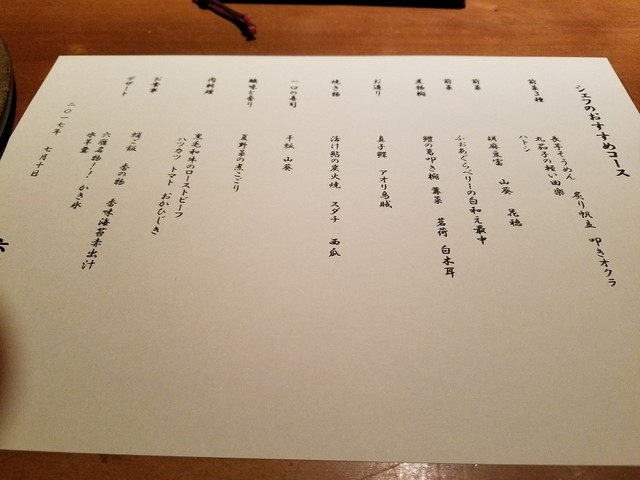 シェフのおすすめコース
前菜3種
長芋そうめん 炙り帆立 叩きオクラ
丸茄子の軽い田楽
ハトシ
前菜
胡麻豆富 山葵 花穂
前菜
ふぉあぐらベリーの白和え最中
煮物椀
鱧の葛叩き椀 蓴菜 茗荷 白木耳
お造り
真子鰈 アオリ烏賊
焼き物
活け鮎の炭火焼 スダチ 西瓜
一口の寿司
干瓢 山葵
酸味と香り
夏野菜の煮こごり
肉料理
黒毛和牛のローストビーフ
ハツカツ トマト おかひじき
お食事
鯛ご飯 香の物 香味海苔赤出汁
デザート
六雁名物!! かき氷
水羊羹
二〇一七年 七月十日